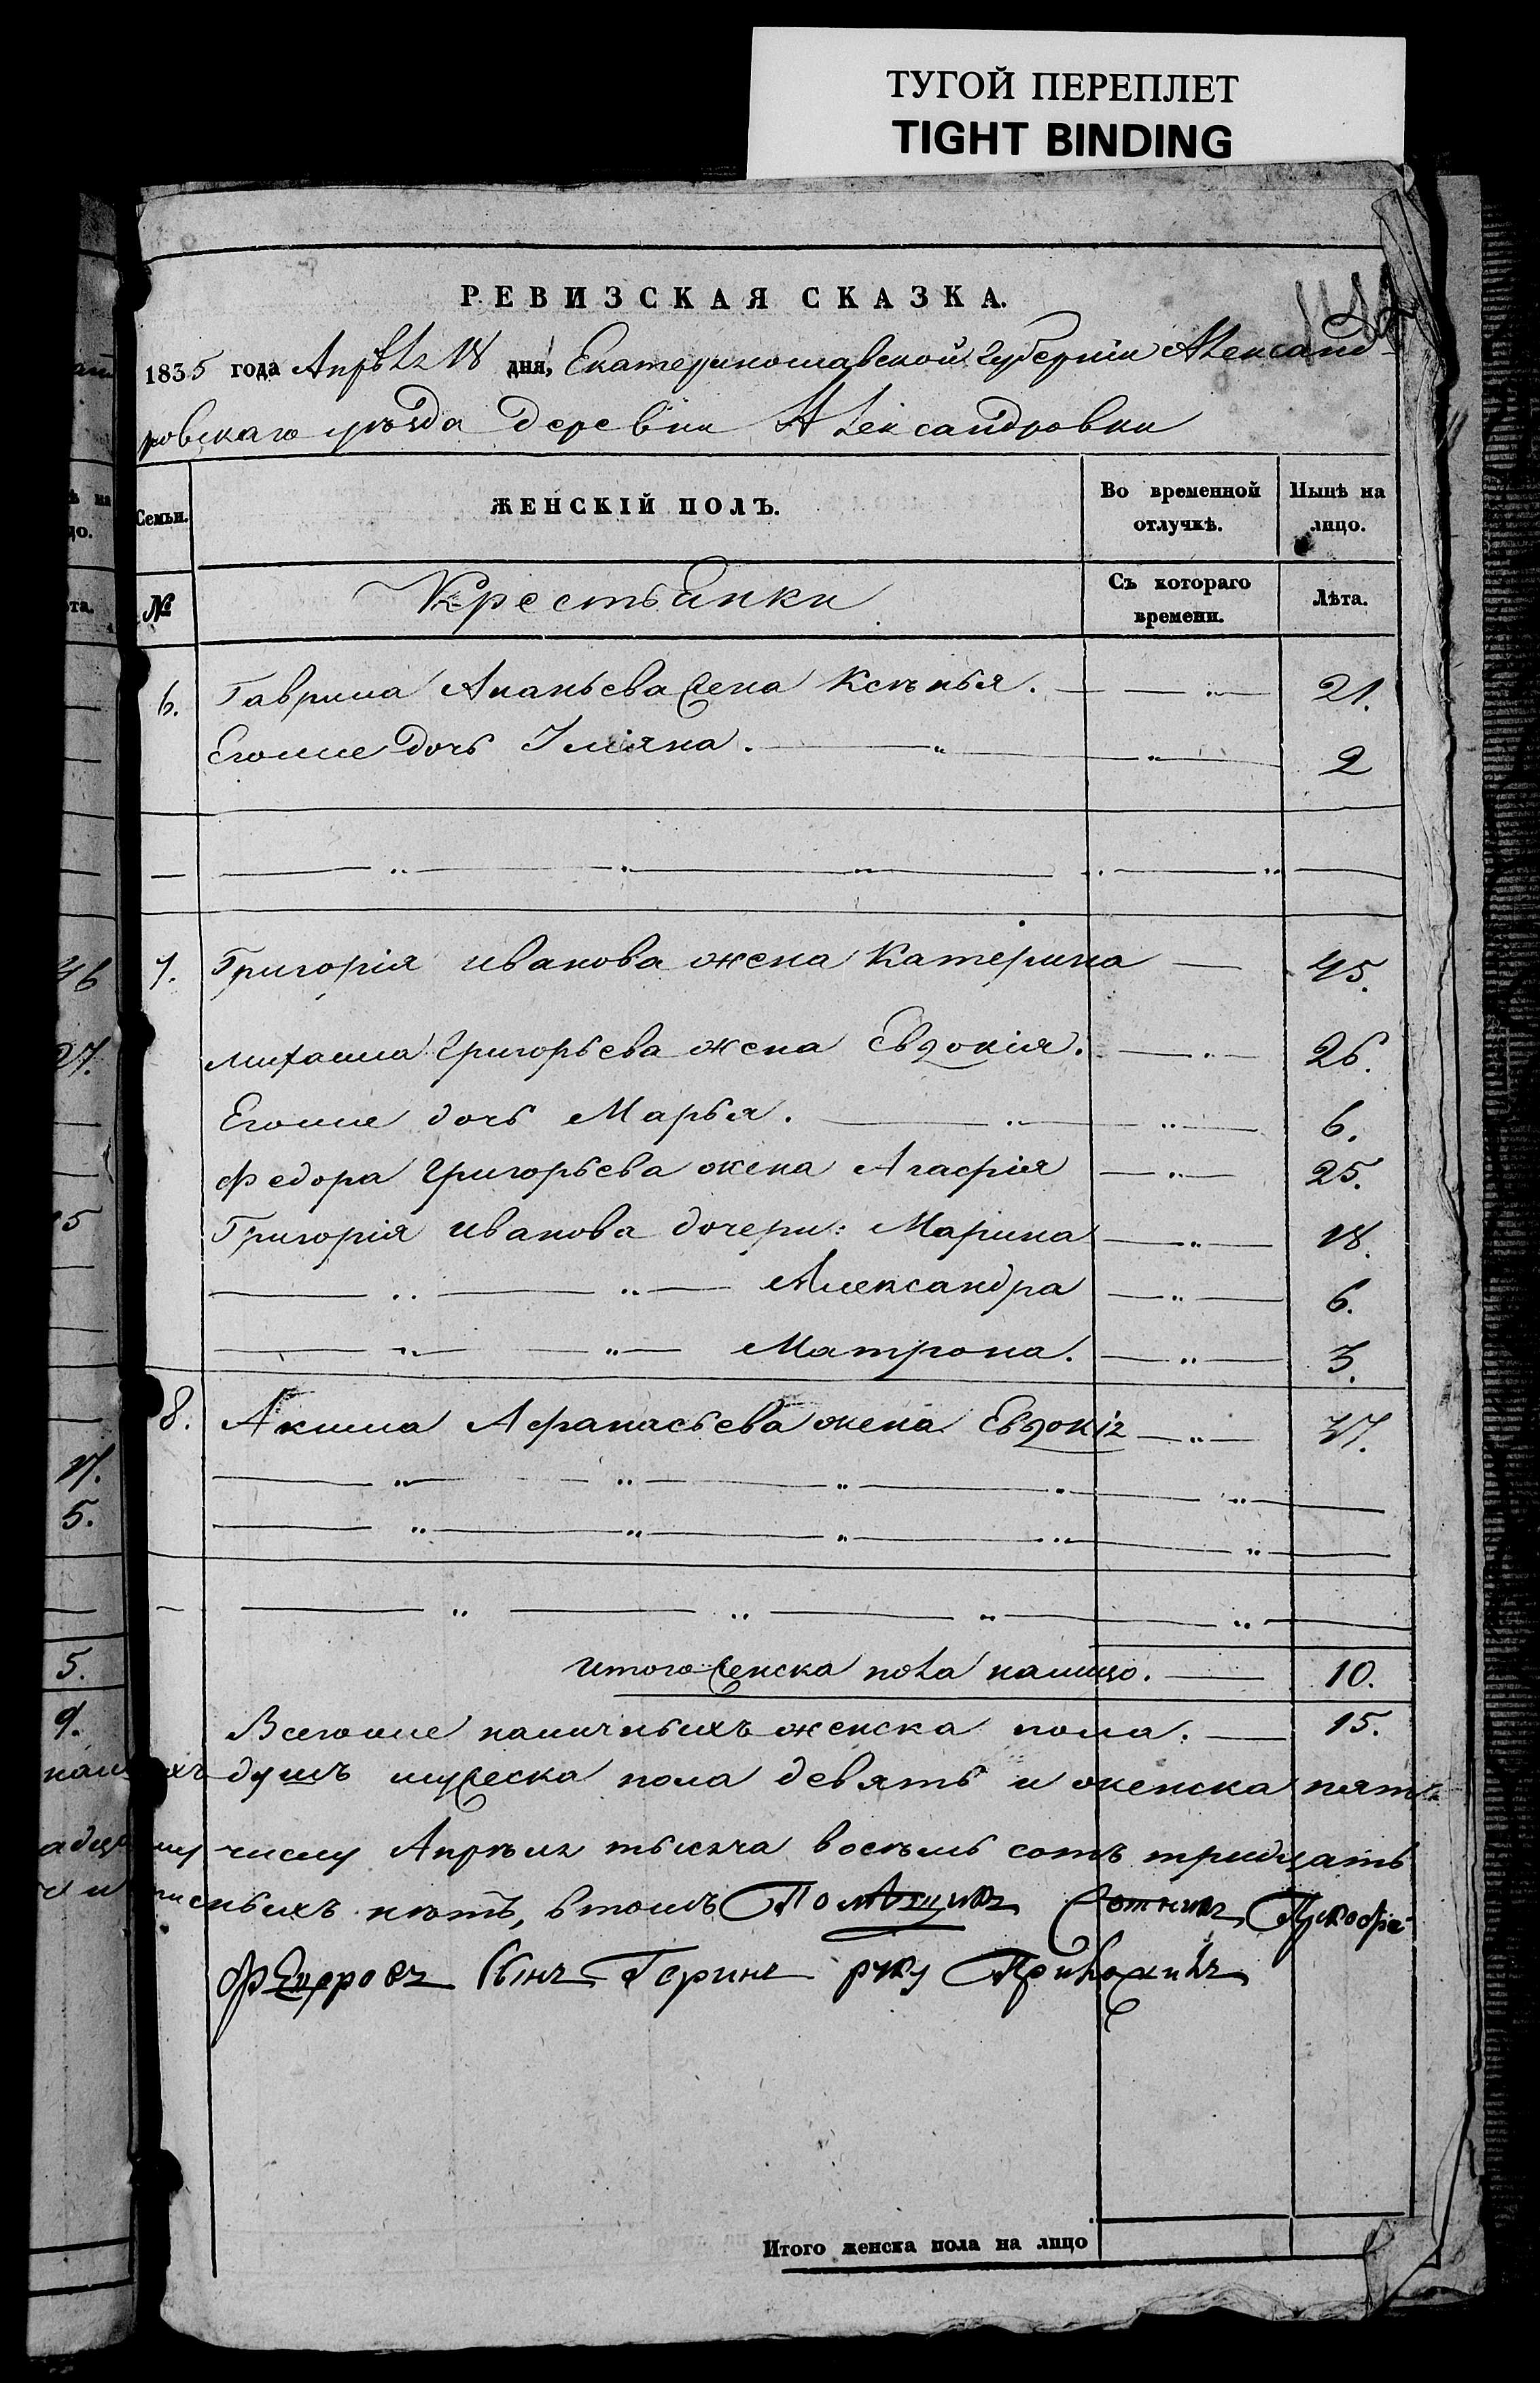 ТУГОЙ ПЕРЕПЛЕТ
TIGHT BINDING
РЕВИЗСКАЯ СКАЗКА.
1835 года Апрѣля 18 дня, Екатеринославской губерніи Александ-
ровскаго уѣзда деревни Александровки
Семьи. ЖЕНСКІЙ ПОЛЪ. Во временной отлучкѣ. Нынѣ на лицо.
№ Крестьянки Съ котораго времени. Лѣта.
6. Гаврила Ананьева жена Ксѣнья. 21.
Егоже дочь Уліяна. 2
7. Григорія Иванова жена Катерина 45.
Михаила Григорьева жена Евдокія. 26.
Егоже дочь Марья. 6.
Федора Григорьева жена Агафія 25.
Григорія Иванова дочери: Марина 18.
Александра 6.
Матрона. 3.
8. Акима Афанасьева жена Евдокія 37.
Итого женска пола налицо. 10.
Всегоже наличныхъ женска пола. 15.
душъ мужеска пола девять и женска пят
числу Апрѣля тысяча восѣмь сотъ тридцать
нѣтъ, втомъ Помѣщикъ
сынъ руку Приложилъ
Итого женска пола на лицо
46
27.
15
17.
5.
5.
9.